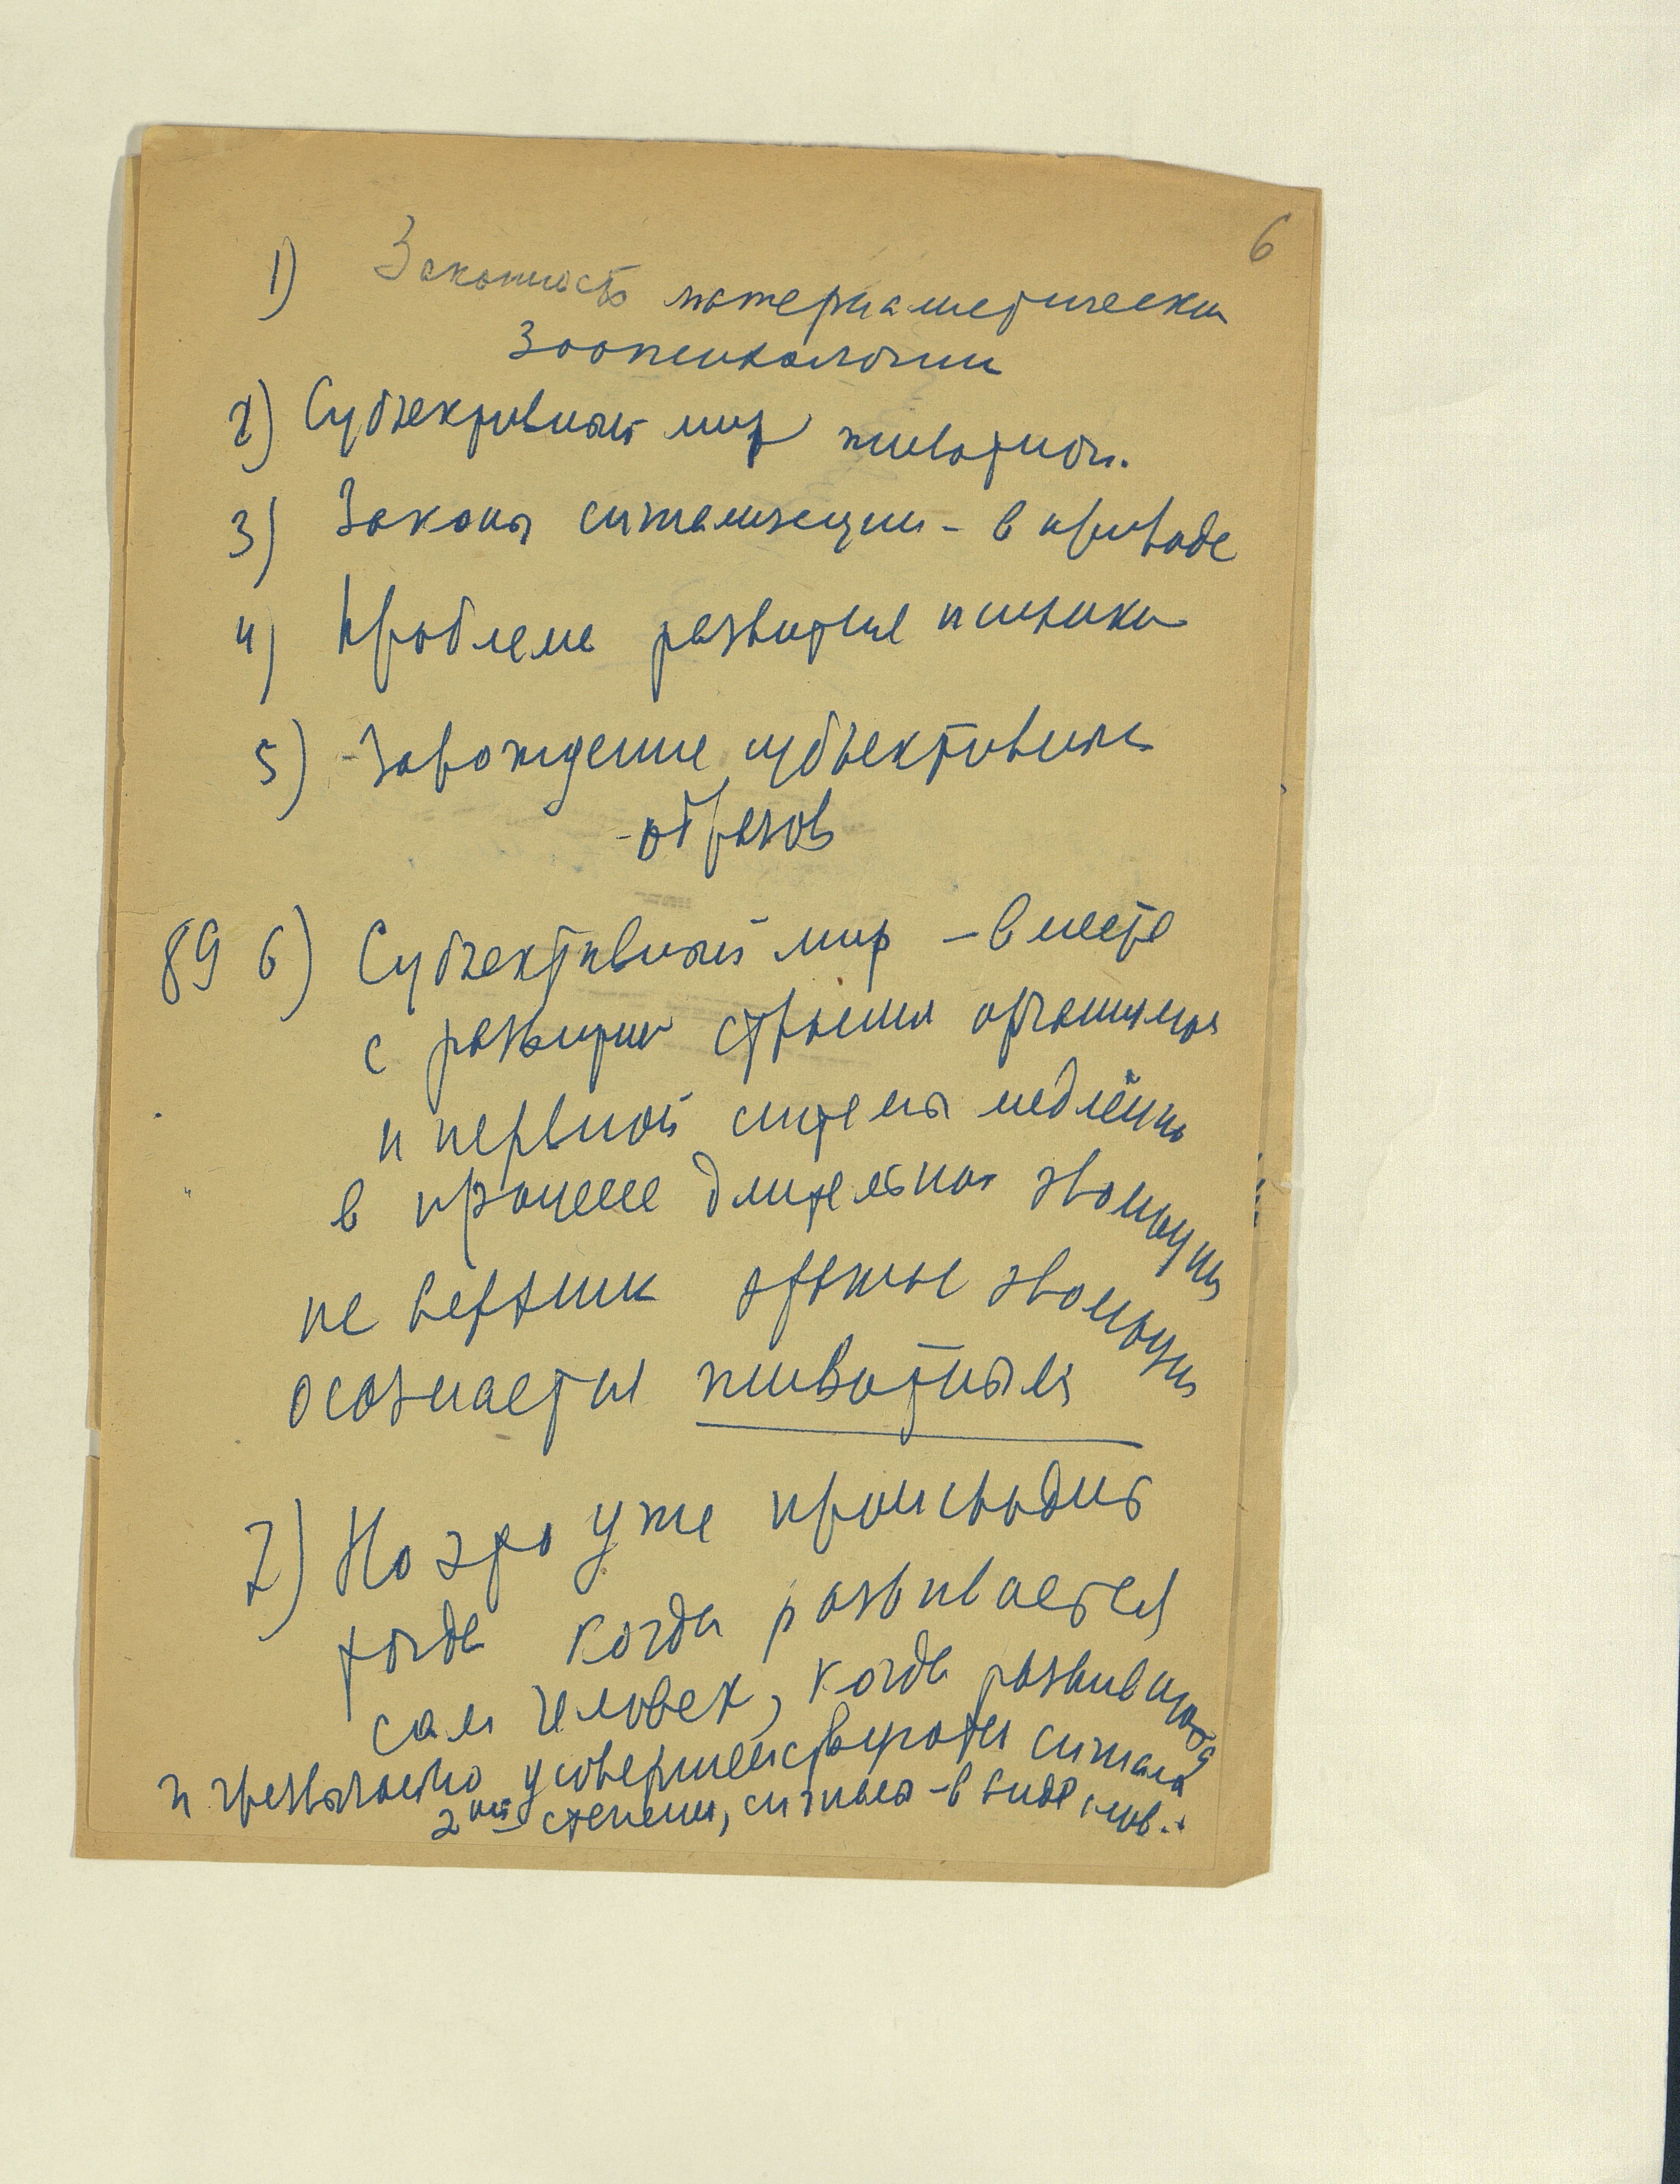 6
1) Законность материалистически
Зоопсихологии
2) Субъективный мир животных.
3) Законы сигнализации - в природе
4) Проблема развития психики
5) Зарождение субъективных
образов
89 6) Субъективный мир – вместе
с развитием строения организма
и нервной системы медленно
в процессе длительной эволюции
не эволюции
осознается животным
7) Но это уже происходит
тогда когда развивается
сам человек, когда развиваются
и чрезвычайно усовершенствуются сигналы
2ой степени, сигналы – в виде слов.